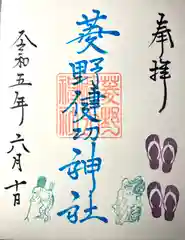 奉拝
菱野健功神社
令和五年 六月十日